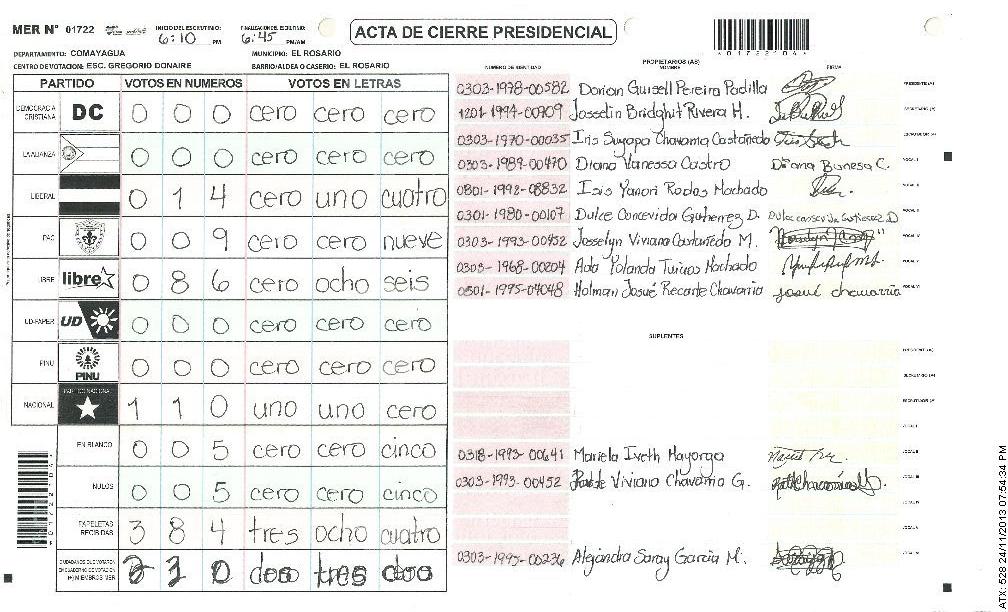 MER N° 01722
INICIO DEL ESCRUTINIO: 6:10 PM
FINALIZACION DEL ESCRUTINIO: 6:45 PM/AM
ACTA DE CIERRE PRESIDENCIAL
0172204
DEPARTAMENTO: COMAYAGUA
MUNICIPIO: EL ROSARIO
CENTRO DE VOTACION: ESC. GREGORIO DONAIRE
BARRIO/ALDEA O CASERIO: EL ROSARIO
PARTIDO VOTOS EN NUMEROS VOTOS EN LETRAS
DEMOCRACIA CRISTIANA DC 0 0 0 cero cero cero
LA ALIANZA 0 0 0 cero cero cero
LIBERAL 0 1 4 cero uno cuatro
PAC 0 0 9 cero cero nueve
LIBRE libre 0 8 6 cero ocho seis
UD-FAPER UD 0 0 0 cero cero cero
PINU PINU 0 0 0 cero cero cero
NACIONAL PARTIDO NACIONAL 1 1 0 uno uno cero
EN BLANCO 0 0 5 cero cero cinco
NULOS 0 0 5 cero cero cinco
PAPELETAS RECIBIDAS 3 8 4 tres ocho cuatro
CIUDADANOS QUE VOTARON EN CUADERNO DE VOTACION (+) MIEMBROS MER dos tres
PROPIETARIOS (AS)
NUMERO DE IDENTIDAD NOMBRE FIRMA
0303-1998-00582 Dorian Guisell Pereira Padilla PRESIDENTE (A)
1201-1994-00909 Josselin Bridghit Rivera H. SECRETARIO (A)
0303-1970-00035 Iris Suyapa Chavarria Castañedo ESCRUTADOR (A)
0303-1989-00470 Diana Vanessa Castro Diana Banesa C. VOCAL I
0801-1992-08832 Isis Yanori Rodas Machado VOCAL II
0301-1980-00107 Dulce Concevida Gutierrez D. VOCAL III
0303-1993-00452 Josselyn Viviana Castañedo M. VOCAL IV
0303-1968-00204 Ada Yolanda Turcios Machado VOCAL V
0501-1995-04048 Holman Josué Recarte Chavarria josué chavarria VOCAL VI
SUPLENTES
PRESIDENTE (A)
SECRETARIO (A)
ESCRUTADOR (A)
VOCAL I
0318-1993-00641 Mariela Iveth Mayorga VOCAL II
0303-1993-00452 Viviana Chavarria G. VOCAL III
VOCAL IV
VOCAL V
0303-1995-00236 Alejandra Saray Garcia M. VOCAL VI
0172204
ATX: 528 24/11/2013 07:54:34 PM